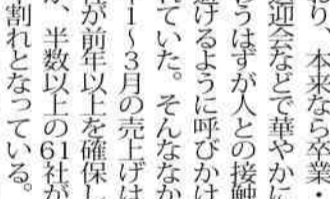 おり、本来なら卒業・
迎会などで華やかに
うはずが人との接触
避けるように呼びかけ
れていた。そんななか
1～3月の売上げは
が前年以上を確保し
、半数以上の61社が
割れとなっている。